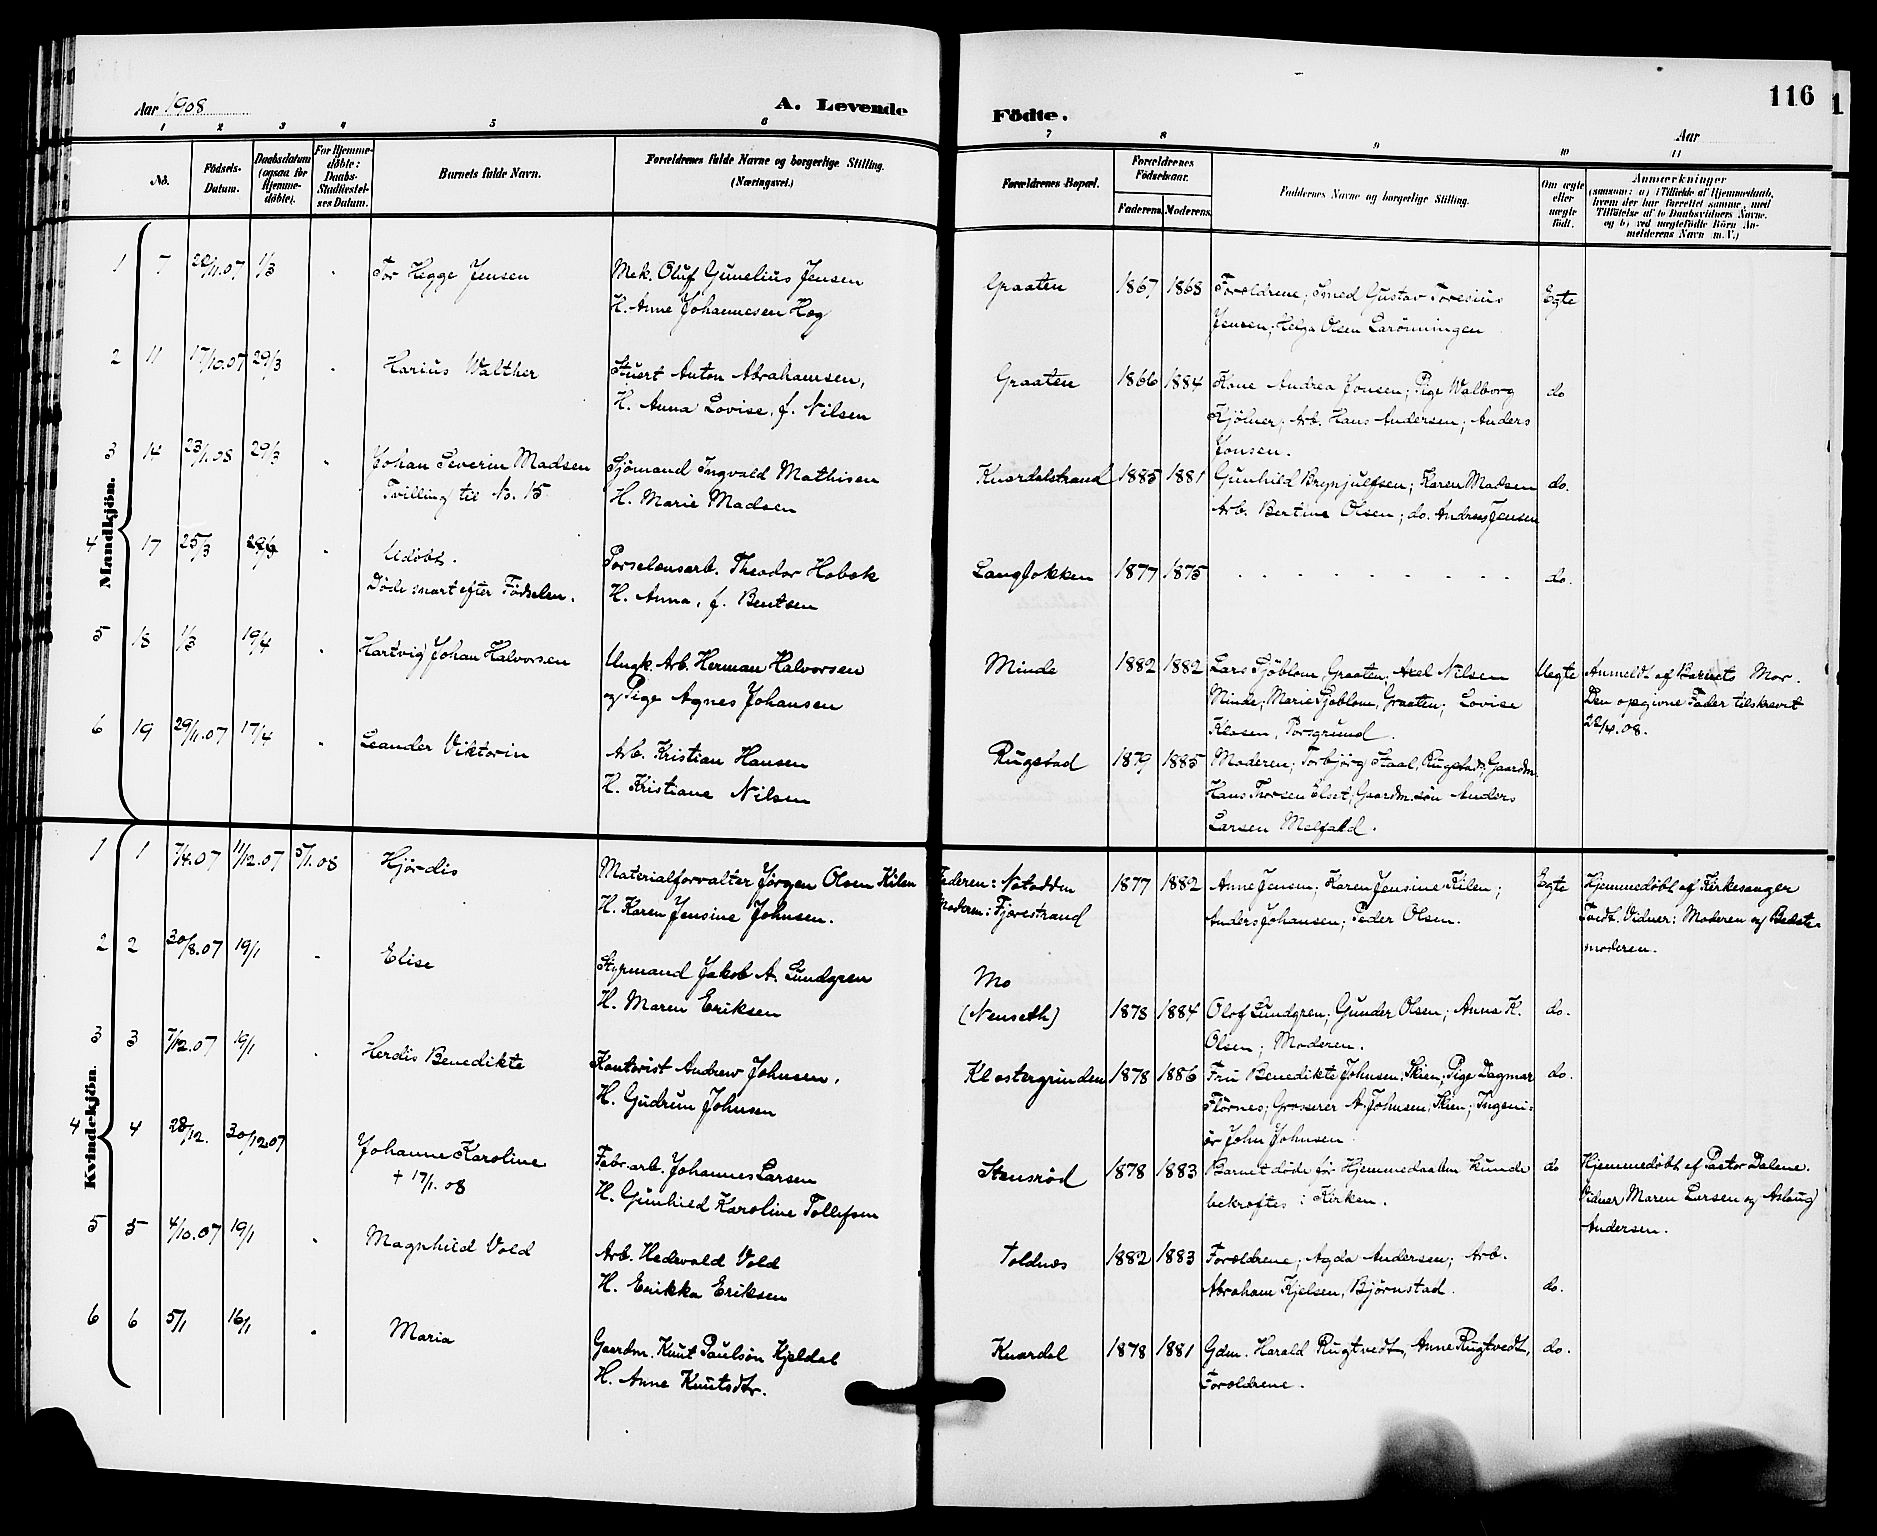 Aar 1908
A. Levende
Födte.
116
Aar
1 2 3 4 5 6 7 8 9 10 11
No.
Födsels-
Datum.
Daabsdatum
(ogsaa for
Hjemme-
döbte).
For Hjemme-
döbte:
Daabs-
Stadfæstel-
ses Datum.
Barnets fulde Navn.
Forældrenes fulde Navne og borgerlige Stilling.
(Næringsvei.)
Forældrenes Bopæl.
Forældrenes
Födselsaar.
Faderens. Moderens.
Faddernes Navne og borgerlige Stilling.
Om ægte
eller
uægte
födt.
Anmærkninger
(saasom: a) i Tilfælde af Hjemmedaab,
hvem der har forrettet samme, med
Tilföielse af to Daabsvidners Navne,
og b) ved uægtefödte Börn An-
melderens Navn m. V.)
Mandkjön.
1 7 22/11.07 1/3 Tor Hegge Jensen Mek. Oluf Gunelius Jensen Graaten 1867 1868 Forældrene; Smed Gustav Toresius Egte
H. Anne Johannesen Hog Jensen; Helga Olsen Larönningen
2 11 17/10.07 29/3 Harius Walther Stuert Anton Abrahamsen, Graaten 1866 1884 Kone Andrea Jonsen; Pige Walborg do
H. Anna Lovise, f. Nilsen Kjölner; Arb. Hans Andersen; Anders
Jonsen.
3 14 23/1.08 29/3 Johan Severin Madsen Sjömand Ingvald Mathisen Knardalstrand 1885 1881 Gunhild Brynjulfsen; Karen Madsen do.
Tvilling til No. 15 H. Marie Madsen Arb. Bertine Olsen; do. Andreas Jensen
4 17 25/3 Udöbt. Porselensarb. Theodor Hobæk Langbakken 1877 1875 do.
Döde snart efter Födselen. H. Anna, f. Bentsen
5 18 1/3 19/4 Hartvig Johan Halvorsen Ungk. Arb. Herman Halvorsen Minde 1882 1882 Lars Sjöblom, Graaten; Axel Nilsen Uegte Anmeldt af Barnets Mor.
og Pige Agnes Johansen Minde; Marie Sjöblom, Graaten; Lovise Den opgivne Fader tilskrevet
Klasen, Porsgrund. 22/4.08.
6 19 29/11.07 17/4 Leander Viktorin Arb. Kristian Hansen Rugstad 1879 1885 Moderen; Torbjörg Staal, Rugstad; Gaardm.
H. Kristiane Nilsen Hans Thorsen Ölset; Gaardm.sön Anders
Larsen Melfald.
Kvindekjön.
1 1 7/4.07 11/12.07 5/1.08 Hjördis Materialforvalter Jörgen Olsen Kilen Faderen: Notodden 1877 1882 Anne Jensen; Karen Jensine Kilen; Egte Hjemmedöbt af Kirkesanger
H. Karen Jensine Johnsen. Moderen: Fjærestrand Anders Johansen; Peder Olsen. Tvedt. Vidner: Moderen og Bedste-
moderen.
2 2 30/8.07 19/1 Elise Styrmand Jakob A. Lundgren Mo
H. Maren Eriksen (Nenseth) 1878 1884 Olof Lundgren; Gunder Olsen; Anna K. do.
Olsen; Moderen.
3 3 7/12.07 19/1 Herdis Benedikte Kontorist Andrew Johnsen, Klostergrunden 1878 1886 Fru Benedikte Johnsen, Skien; Pige Dagmar do.
H. Gudrun Johnsen Flörnes; Grosserer A. Johnsen, Skien; Ingeni-
ör John Johnsen
4 4 28/12. 30/12.07 Johanne Karoline Fabr.arb. Johannes Larsen Stensröd 1878 1883 Barnet döde för Hjemmedaaben kunde do Hjemmedöbt af Pastor Dalene.
+ 17/1.08 H. Gunhild Karoline Tollefsen bekræftes i Kirken. Vidner Maren Larsen og Aslaug
Andersen.
5 5 4/10.07 19/1 Magnhild Vold Arb. Hedevald Vold Toldnes 1882 1883 Forældrene; Agda Andersen; Arb.
H. Erikka Eriksen Abraham Kjelsen, Björnstad. do.
6 6 5/1 16/1 Maria Gaardm. Knut Paulsön Kjeldal Knardal 1878 1881 Gdm. Harald Rugtvedt, Anne Rugtvedt, do.
H. Anne Knutsdtr. Forældrene.